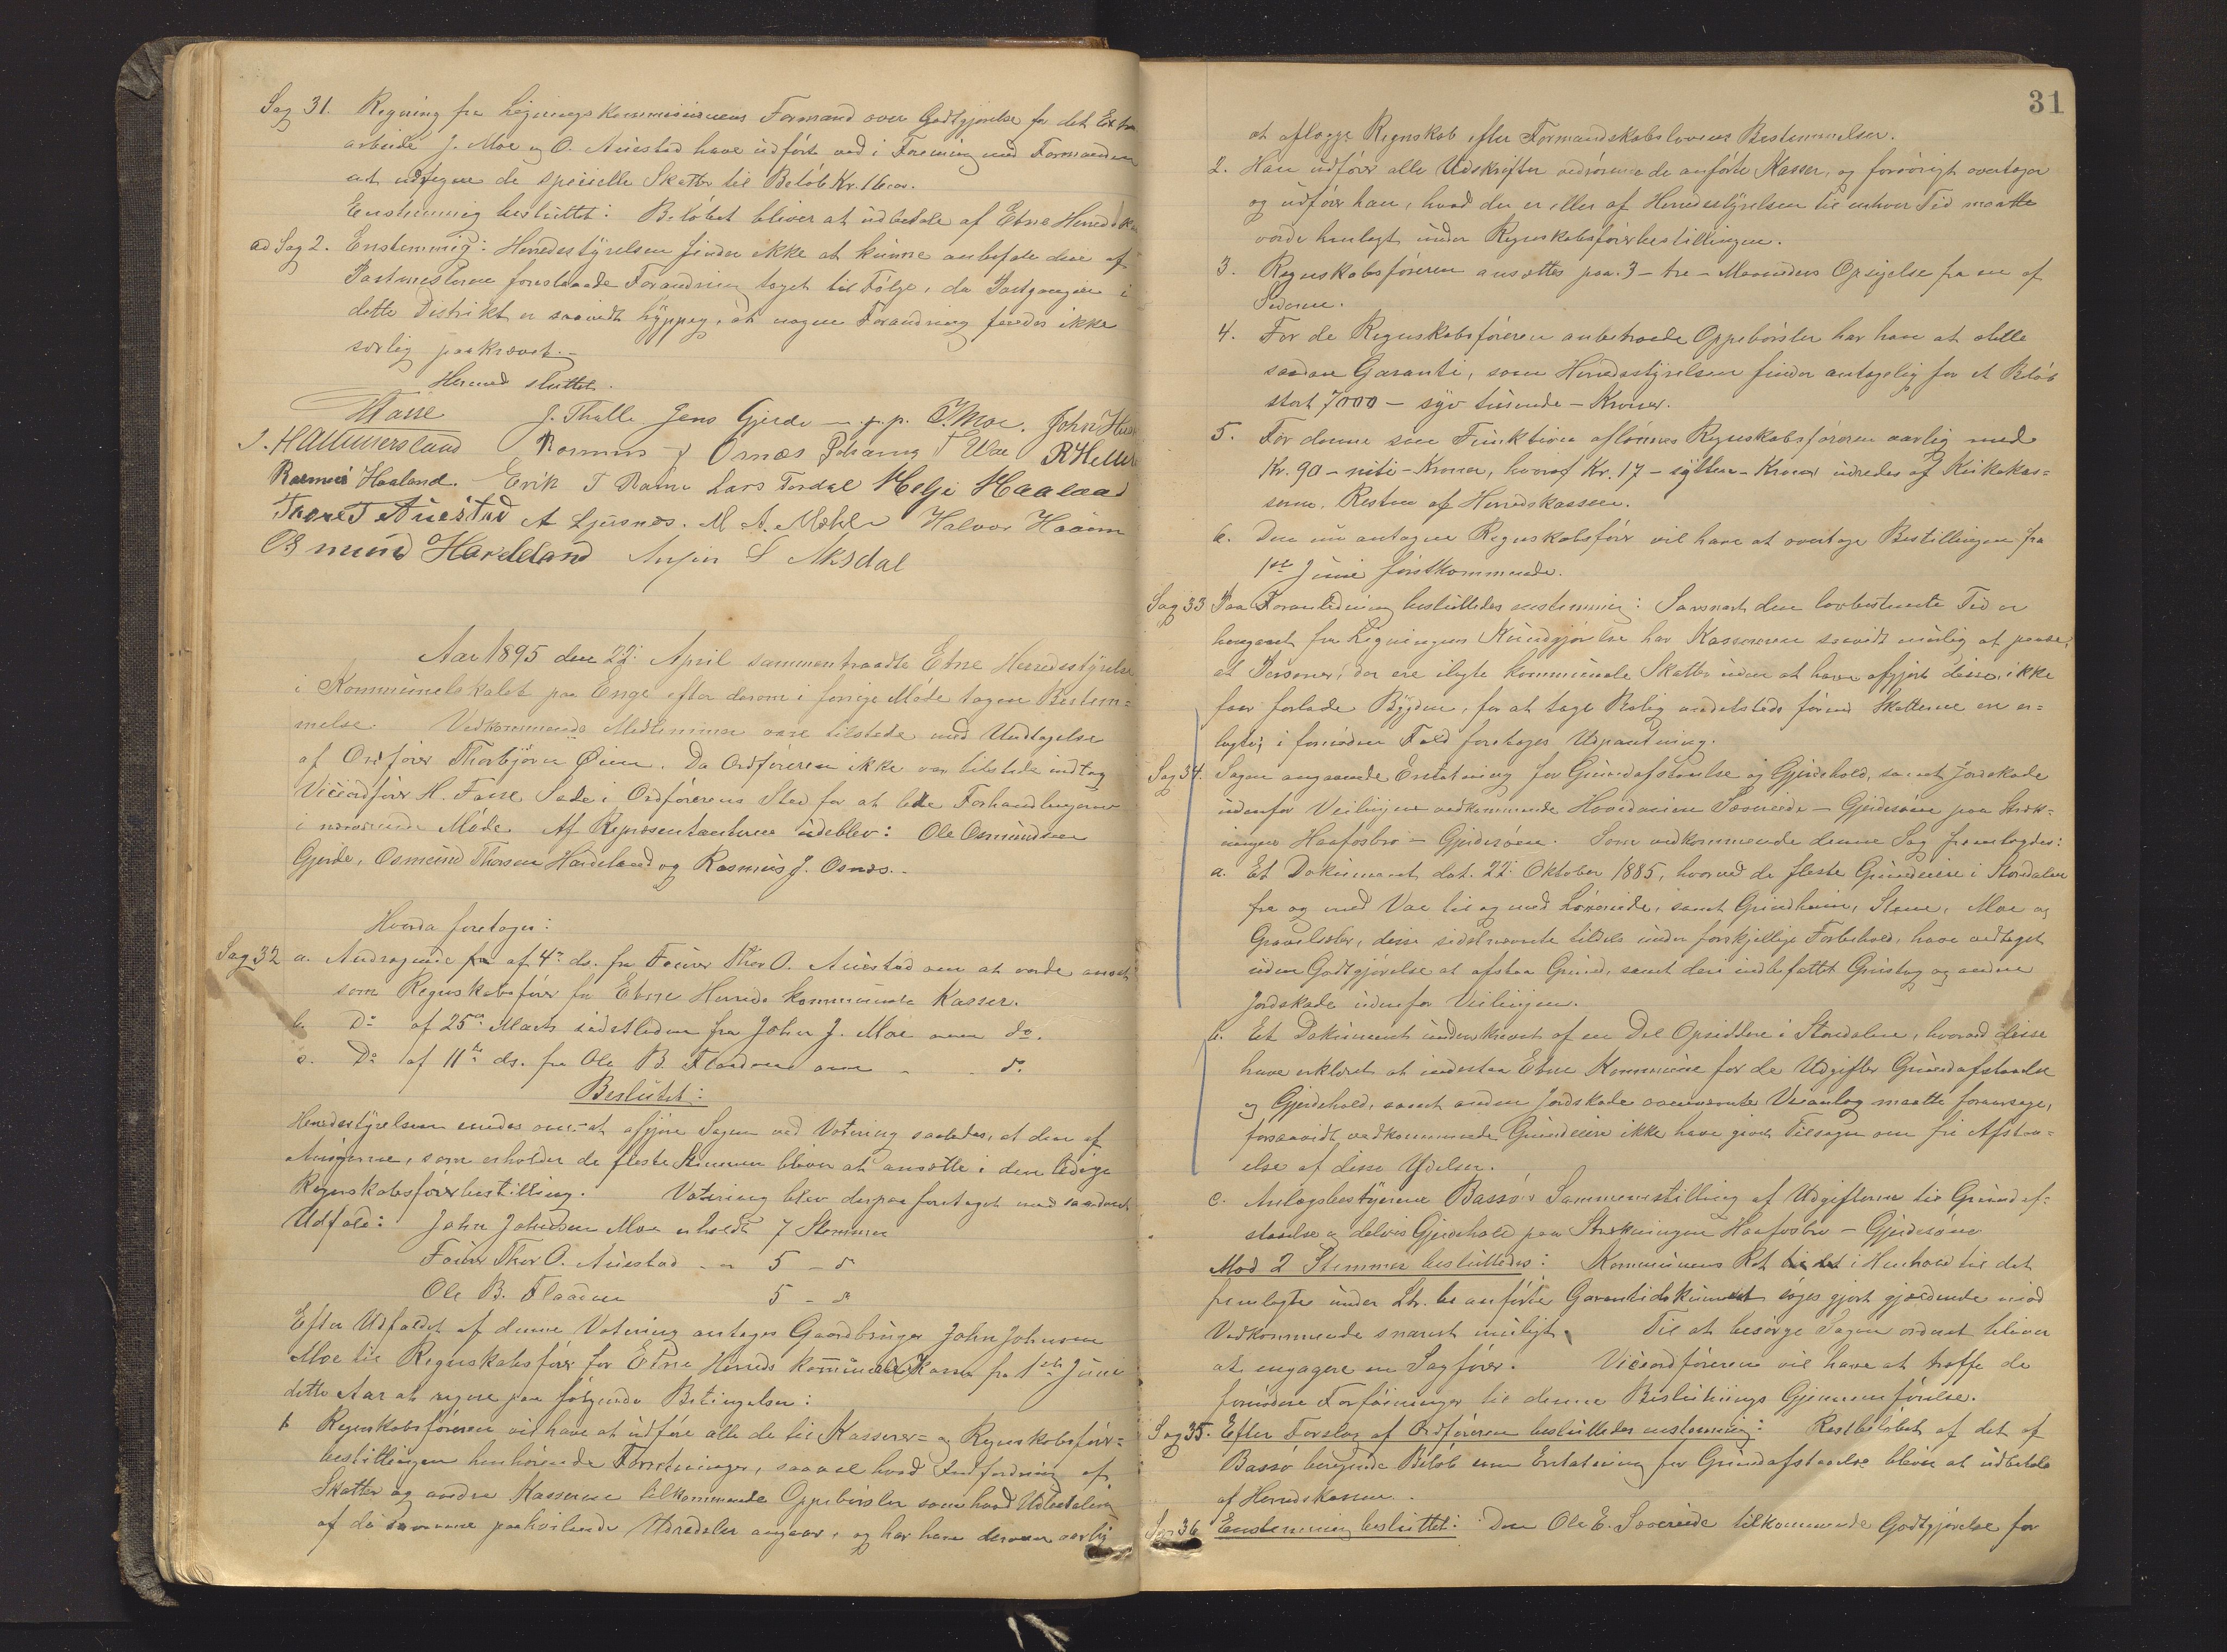 Sag 31. Regning fra Ligningskommissionens Formand over Godtgjørelse for det Extra
arbeide J. Moe og O. Auestad have udført ved i Forening med Formanden
at udregne de specielle Skatter til Beløb Kr. 16.00.
Enstemmig besluttet: Beløbet bliver at udbetale af Etne Heredsk
ad Sag 2. Enstemmig: Herredsstyrelsen finder ikke at kunne anbefale den af
Postmesteren foreslaaede Forandring taget til Følge, da Postgangen i
dette Distrikt er saavidt hyppig, at nogen Forandring findes ikke
særlig paakrævet.-
Hermed sluttet.
H Faise J. Thulle Jens Gjerde - p.p. O. Moe. John
S. H Rasmus J Osnæs Johannes T Wae R Helle
Rasmus Haaland. Erik T Rame Lars Tordal Helje Haaland
Thore T Auestad A Ljusnes. M A. Mæhle Halvor Haaim
Osmund Hardeland Anfin S Aksdal
Aar 1895 den 22: April sammentraadte Etne Herredsstyrelse
i Kommunelokalet paa Enge efter derom i forrige Møde tagen Bestem=
melse. Vedkommende Medlemmer vare tilstede med Undtagelse
af Ordfører Thorbjørn Øien. Da Ordføreren ikke var tilstede indtog
Viceordfører H. Faise Sæde i Ordførerens Sted for at lede Forhandlingerne
i nærværende Møde. Af Repræsentanterne udeblev: Ole Osmundsen
Gjerde, Osmund Thorsen Hardeland og Rasmus J. Osnæs.-
Hvorda foretoges:
Sag 32 a. Andragende fra af 4de ds. fra Fourer Thor O. Auestad om at vorde ansat
som Regnskabsfører for Etne Herreds kommunale Kasser.
b. Do af 25de Marts sidstleden fra John J. Moe om do.
c. Do af 11te ds. fra Ole B. Flaaden om - - do
Besluttet:
Herredsstyrelsen enedes om at afgjøre Sagen ved Votering saaledes, at den af
Ansøgerne, som erholder de fleste Stemmer bliver at ansætte i den ledige
Regnskabsførerbestilling. Votering blev derpaa foretaget med saadant
Udfald: John Johnsen Moe erholdt 7 Stemmer
Fourer Thor O. Auestad - " 5 - do
Ole B. Flaaden 5 - do
Efter Udfaldet af denne Votering antoges Gaardbruger John Johnsen
Moe til Regnskabsfører for Etne Herreds kommunale Kasser fra 1ste Juni
dette Aar at regne paa følgende Betingelser:
1. Regnskabsføreren vil have at udføre alle de til Kasserer= og Regnskabsfører=
bestillingen henhørende Forretninger, saavel hvad Indfordring af
Skatter og andre Kasserne tilkommende Oppebørsler som hvad Udbetaling
af de samme paahvilende Udredsler angaar, og har han derom aarlig
31
at aflægge Regnskab efter Formandskabslovens Bestemmelser.
2. Han udfører alle Udskrifter vedrørende de anførte Kasser, og forøvrigt overtager
og udfører han, hvad der er eller af Herredsstyrelsen til enhver Tid maatte
vorde henlagt under Regnskabsførerbestillingen.
3. Regnskabsføreren ansættes paa 3 - tre - Maaneders Opsigelse fra en af
Siderne.
4. For de Regnskabsføreren anbetroede Oppebørsler har han at stille
saadan Garanti, som Herredsstyrelsen finder antagelig for et Beløb
stort 7000 - syv tusende - Kroner.
5. For denne sin Funktion aflønnes Regnskabsføreren aarlig med
Kr. 90 - niti - Kroner, hvoraf Kr. 17 - sytten - Kroner udredes af Kirkekas=
serne, Resten af Herredskassen.
6. Den nu antagne Regnskabsfører vil have at overtage Bestillingen fra
1ste Juni førstkommende.
Sag 33 Paa Foranledning besluttedes enstemmig: Saasnart den lovbestemte Tid er
hengaaet fra Ligningens Kundgjørelse har Kassereren saavidt muligt at paase,
at Personer, der ere ilagte kommunale Skatter uden at have afgjort disse, ikke
faar forlade Bygden, for at tage Bolig andetsteds førend Skatterne ere er=
lagte, i fornøden Fald foretages Udpantning.
Sag 34. Sagen angaaende Erstatning for Grundafstaaelse og Gjerdehold, samt Jordskade
udenfor Veilinjen vedkommende Hovedveien Sævereide - Gjerdesøen paa Stræk=
ningen Haafosbro - Gjerdesøen. Som vedkommende denne Sag fremlagdes:
a. Et Dokument dat. 22: Oktober 1885, hvorved de fleste Grundeiere i Stordalen
fra og med Vae til og med Løvereide, samt Grindheim, Stene, Moe og
Gravelsæter, disse sidstnævnte tildels under forskjellige Forbehold, have vedtaget
uden Godtgjørelse at afstaa Grund, samt deri indbefattet Grustag og anden
Jordskade udenfor Veilinjen.
b. Et Dokument underskrevet af en Del Opsiddere i Stordalen, hvorved disse
have erklæret at indestaa Etne Kommune for de Udgifter Grundafstaaelse
og Gjerdehold, samt anden Jordskade ovennævnte Veianlæg maatte foraarsage,
forsaavidt vedkommende Grundeiere ikke have givet Tilsagn om fri Afstaa=
else af disse Ydelser.
c. Anlægsbestyrer Bassøe's Sammenstilling af Udgifterne til Grundaf=
staaelse og delvis Gjerdehold paa Strækningen Haafosbro - Gjerdesøen
Mod 2 Stemmer besluttedes: Kommunens Ret i Henhold til det
fremlagte under Ltr. b anførte Garantidokument søges gjort gjældende mod
Vedkommende snarest muligt. Til at besørge Sagen ordnet bliver
at engagere en Sagfører. Viceordføreren vil have at træffe de
fornødne Forføininger til denne Beslutnings Gjennemførelse.
Sag 35. Efter Forslag af Ordføreren besluttedes enstemmig: Restbeløbet af det af
Bassø beregnede Beløb som Erstatning for Grundafstaaelse bliver at udbetale
af Herredskassen.
Sag 36 Enstemmig besluttet: Den Ole E. Sævereide tilkommende Godtgjørelse for